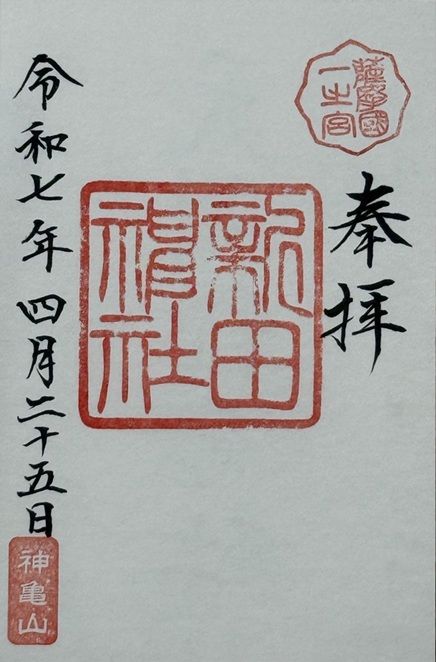 薩摩國
一之宮
奉拝
新田
神社
令和七年四月二十五日
神亀山